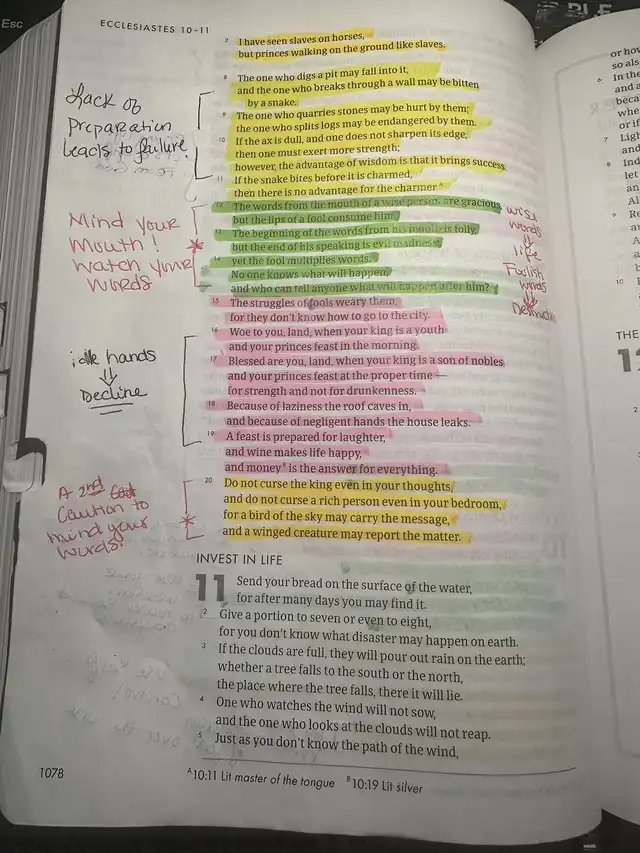 Esc
ECCLESIASTES 10–11
7 I have seen slaves on horses,
but princes walking on the ground like slaves.
8 The one who digs a pit may fall into it,
and the one who breaks through a wall may be bitten
by a snake.
9 The one who quarries stones may be hurt by them;
the one who splits logs may be endangered by them.
10 If the ax is dull, and one does not sharpen its edge,
then one must exert more strength;
however, the advantage of wisdom is that it brings success.
11 If the snake bites before it is charmed,
then there is no advantage for the charmer.A
12 The words from the mouth of a wise person are gracious,
but the lips of a fool consume him.
13 The beginning of the words from his mouth is folly,
but the end of his speaking is evil madness;
14 yet the fool multiplies words.
No one knows what will happen,
and who can tell anyone what will happen after him?
15 The struggles of fools weary them,
for they don't know how to go to the city.
16 Woe to you, land, when your king is a youth
and your princes feast in the morning.
17 Blessed are you, land, when your king is a son of nobles
and your princes feast at the proper time —
for strength and not for drunkenness.
18 Because of laziness the roof caves in,
and because of negligent hands the house leaks.
19 A feast is prepared for laughter,
and wine makes life happy,
and moneyB is the answer for everything.
20 Do not curse the king even in your thoughts,
and do not curse a rich person even in your bedroom,
for a bird of the sky may carry the message,
and a winged creature may report the matter.
INVEST IN LIFE
11 Send your bread on the surface of the water,
for after many days you may find it.
2 Give a portion to seven or even to eight,
for you don't know what disaster may happen on earth.
3 If the clouds are full, they will pour out rain on the earth;
whether a tree falls to the south or the north,
the place where the tree falls, there it will lie.
4 One who watches the wind will not sow,
and the one who looks at the clouds will not reap.
5 Just as you don't know the path of the wind,
1078
A 10:11 Lit master of the tongue B 10:19 Lit silver
Lack of
Preparation
Leads to failure.
Mind your
mouth!
watch your
words
idle hands
Decline
A 2nd
Caution to
mind your
words.
wise
words
life
Foolish
words
Destruction
or how
so als
6 In the
and a
beca
whe
or if
7 Ligh
and
8 Ind
let
an
Al
9 R
10
THE
12
2